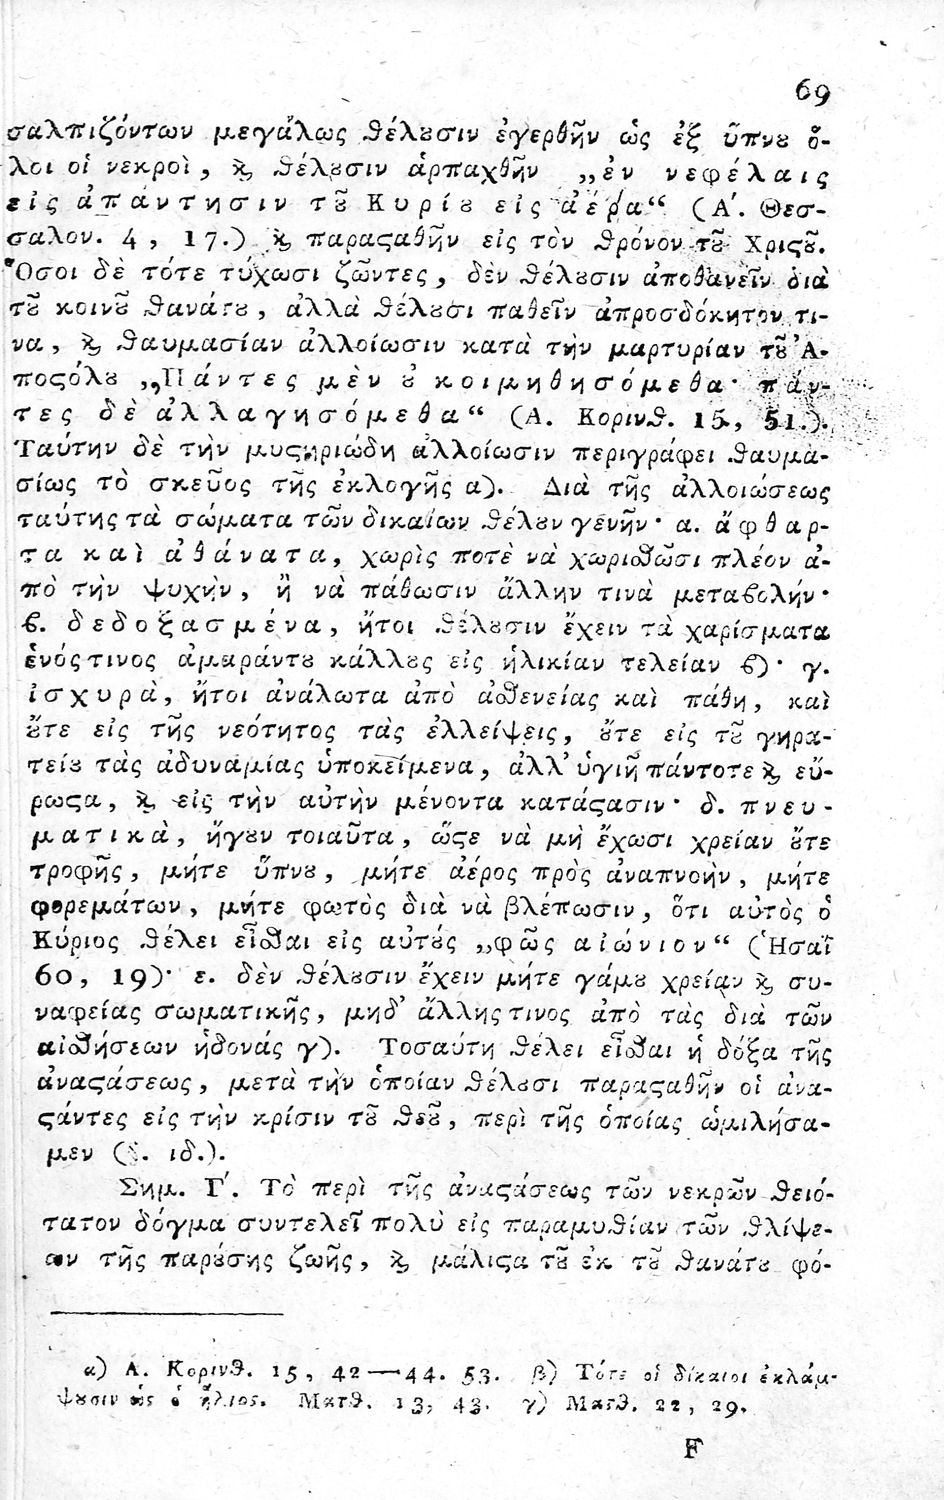 69
σαλπιζόντων μεγάλως θέλȣσιν ἐγερθῆν ὡς ἐξ ὕπνȣ ὅ-
λοι οἱ νεκροὶ, ϗ θέλȣσιν ἁρπαχθῆν „ἐν νεφέλαις
εἰς ἀπάντησιν τȣ͂ Κυρίȣ εἰς ἀέρα“ (Α΄. Θεσ-
σαλον. 4, 17.) ϗ παραϛαθῆν εἰς τὸν θρόνον τȣ͂ Χριϛȣ͂.
Ὅσοι δὲ τότε τύχωσι ζῶντες, δὲν θέλȣσιν ἀποθανεῖν διὰ
τȣ͂ κοινȣ͂ θανάτȣ, ἀλλὰ θέλȣσι παθεῖν ἀπροσδόκητον τι-
να, ϗ θαυμασίαν ἀλλοίωσιν κατὰ τὴν μαρτυρίαν τȣ͂ Ἀ-
ποϛόλȣ „Πάντες μὲν ȣ̓ κοιμηθησόμεθα· πάν-
τες δὲ ἀλλαγησόμεθα“ (Α. Κορινθ. 15, 51.).
Ταύτην δὲ τὴν μυϛηριώδη ἀλλοίωσιν περιγράφει θαυμα-
σίως τὸ σκεῦος τῆς ἐκλογῆς α). Διὰ τῆς ἀλλοιώσεως
ταύτης τὰ σώματα τῶν δικαίων θέλȣν γένῃν· α. ἄφθαρ-
τα καὶ ἀθάνατα, χωρὶς ποτὲ νὰ χωρισθῶσι πλέον ἀ-
πὸ τὴν ψυχὴν, ἢ νὰ πάθωσιν ἄλλην τινὰ μεταβολήν·
β. δεδοξασμένα, ἤτοι θέλȣσιν ἔχειν τὰ χαρίσματα
ἑνός τινος ἀμαράντȣ κάλλȣς εἰς ἡλικίαν τελείαν β)· γ.
ἰσχυρὰ, ἤτοι ἀνάλωτα ἀπὸ ἀσθενείας καὶ πάθη, καὶ
ȣ̓́τε εἰς τῆς νεότητος τὰς ἐλλείψεις, ȣ̓́τε εἰς τȣ͂ γηρα-
τείȣ τὰς ἀδυναμίας ὑποκείμενα, ἀλλ' ὑγιῆ πάντοτε ϗ εὔ-
ρωϛα, ϗ εἰς τὴν αὐτὴν μένοντα κατάϛασιν· δ. πνευ-
ματικὰ, ἤγȣν τοιαῦτα, ὥϛε νὰ μὴ ἔχωσι χρείαν ȣ̓́τε
τροφῆς, μήτε ὕπνȣ, μήτε ἀέρος πρὸς ἀναπνοὴν, μήτε
φορεμάτων, μήτε φωτὸς διὰ νὰ βλέπωσιν, ὅτι αὐτὸς ὁ
Κύριος θέλει εἶσθαι εἰς αὐτȣ́ς „φῶς αἰώνιον“ (Ἡσαΐ
60, 19)· ε. δὲν θέλȣσιν ἔχειν μήτε γάμȣ χρείαν ϗ συ-
ναφείας σωματικῆς, μηδ' ἄλλης τινος ἀπὸ τὰς διὰ τῶν
αἰσθήσεων ἡδονάς γ). Τοσαύτη θέλει εἶσθαι ἡ δόξα τῆς
ἀναϛάσεως, μετὰ τὴν ὁποίαν θέλȣσι παραϛαθῆν οἱ ἀνα-
ϛάντες εἰς τὴν κρίσιν τȣ͂ Θεȣ͂, περὶ τῆς ὁποίας ὡμιλήσα-
μεν (§. ιδ.).
Σημ. Γ΄. Τὸ περὶ τῆς ἀναϛάσεως τῶν νεκρῶν θειό-
τατον δόγμα συντελεῖ πολὺ εἰς παραμυθίαν τῶν θλίψε-
ων τῆς παρȣ́σης ζωῆς, ϗ μάλιϛα τȣ͂ ἐκ τȣ͂ θανάτȣ φό-
α) Α. Κορινθ. 15, 42—44. 53. β) Τότε οἱ δίκαιοι ἐκλάμ-
ψȣσιν ὡς ὁ ἥλιος. Ματθ. 13, 43. γ) Ματθ. 22, 29.
F